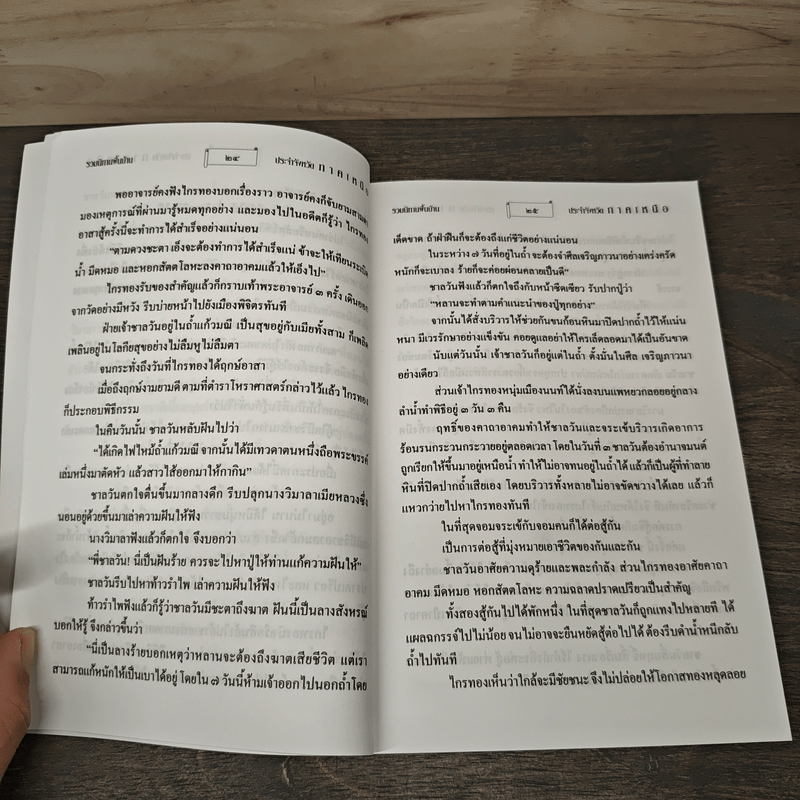 รวมนิทานพื้นบ้าน
๒๔
ประจำจังหวัด ภาคเหนือ
พออาจารย์คงฟังไกรทองบอกเรื่องราว อาจารย์คงก็จับยามสามตา
มองเหตุการณ์ที่ผ่านมารู้หมดทุกอย่าง และมองไปในอดีตก็รู้ว่า ไกรทอง
อาสาสู้ครั้งนี้จะทำการได้สำเร็จอย่างแน่นอน
“ตามดวงชะตา เอ็งจะทำการได้สำเร็จแน่ ข้าจะให้เทียนระเบิด
น้ำ มีดหมอ และหอกสัตตโลหะลงคาถาอาคมแล้วให้เอ็งไป”
ไกรทองรับของสำคัญแล้วก็กราบเท้าพระอาจารย์ ๓ ครั้ง เดินออก
จากวัดอย่างมีหวัง รีบบ่ายหน้าไปยังเมืองพิจิตรทันที
ฝ่ายเจ้าชาลวันอยู่ในถ้ำแก้วมณี เป็นสุขอยู่กับเมียทั้งสาม ก็เพลิด
เพลินอยู่ในโลกียสุขอย่างไม่ลืมหูไม่ลืมตา
จนกระทั่งถึงวันที่ไกรทองได้ฤกษ์อาสา
เมื่อถึงฤกษ์งามยามดี ตามที่ตำราโหราศาสตร์กล่าวไว้แล้ว ไกรทอง
ก็ประกอบพิธีกรรม
ในคืนวันนั้น ชาลวันหลับฝันไปว่า
“ได้เกิดไฟไหม้ถ้ำแก้วมณี จากนั้นได้มีเทวดาตนหนึ่งถือพระขรรค์
เล่มหนึ่งมาตัดหัว แล้วสาวไส้ออกมาให้กากิน”
ชาลวันตกใจตื่นขึ้นมากลางดึก รีบปลุกนางวิมาลาเมียหลวงซึ่ง
นอนอยู่ด้วยขึ้นมาเล่าความฝันให้ฟัง
นางวิมาลาฟังแล้วก็ตกใจ จึงบอกว่า
“พี่ชาลวัน! นี่เป็นฝันร้าย ควรจะไปหาปู่ให้ท่านแก้ความฝันให้”
ชาลวันรีบไปหาท้าวรำไพ เล่าความฝันให้ฟัง
ท้าวรำไพฟังแล้วก็รู้ว่าชาลวันมีชะตาถึงฆาต ฝันนี้เป็นลางสังหรณ์
บอกให้รู้ จึงกล่าวขึ้นว่า
“นี่เป็นลางร้ายบอกเหตุว่าหลานจะต้องถึงฆาตเสียชีวิต แต่เรา
สามารถแก้หนักให้เป็นเบาได้อยู่ โดยใน ๗ วันนี้ห้ามเจ้าออกไปนอกถ้ำโดย
รวมนิทานพื้นบ้าน
๒๕
ประจำจังหวัด ภาคเหนือ
เด็ดขาด ถ้าฝ่าฝืนก็จะต้องถึงแก่ชีวิตอย่างแน่นอน
ในระหว่าง ๗ วันที่อยู่ในถ้ำ จะต้องจำศีลเจริญภาวนาอย่างเคร่งครัด
หนักก็จะเบาลง ร้ายก็จะค่อยผ่อนคลายเป็นดี”
ชาลวันฟังแล้วก็ตกใจถึงกับหน้าซีดเซียว รับปากปู่ว่า
“หลานจะทำตามคำแนะนำของปู่ทุกอย่าง”
จากนั้นได้สั่งบริวารให้ช่วยกันขนก้อนหินมาปิดปากถ้ำไว้ให้แน่น
หนา มีเวรรักษาอย่างแข็งขัน คอยดูแลอย่าให้ใครเล็ดลอดมาได้เป็นอันขาด
นับแต่วันนั้น เจ้าชาลวันก็อยู่แต่ในถ้ำ ตั้งมั่นในศีล เจริญภาวนา
อย่างเดียว
ส่วนเจ้าไกรทองหนุ่มเมืองนนท์ได้นั่งลงบนแพหยวกลอยอยู่กลาง
ลำน้ำทำพิธีอยู่ ๓ วัน ๓ คืน
ฤทธิ์ของคาถาอาคมทำให้ชาลวันและจระเข้บริวารเกิดอาการ
ร้อนรนกระวนกระวายอยู่ตลอดเวลา โดยในวันที่ ๓ ชาลวันต้องอำนาจมนต์
ถูกเรียกให้ขึ้นมาอยู่เหนือน้ำ ทำให้ไม่อาจทนอยู่ในถ้ำได้ แล้วก็เป็นผู้ที่ทำลาย
หินที่ปิดปากถ้ำเสียเอง โดยบริวารทั้งหลายไม่อาจขัดขวางได้เลย แล้วก็
แหวกว่ายไปหาไกรทองทันที
ในที่สุดจอมจระเข้กับจอมคนก็ได้ต่อสู้กัน
เป็นการต่อสู้ที่มุ่งหมายเอาชีวิตของกันและกัน
ชาลวันอาศัยความดุร้ายและพละกำลัง ส่วนไกรทองอาศัยคาถา
อาคม มีดหมอ หอกสัตตโลหะ ความฉลาดปราดเปรียวเป็นสำคัญ
ทั้งสองสู้กันไปได้พักหนึ่ง ในที่สุดชาลวันก็ถูกแทงไปหลายที ได้
แผลฉกรรจ์ไปไม่น้อย จนไม่อาจจะยืนหยัดสู้ต่อไปได้ ต้องรีบดำน้ำหนีกลับ
ถ้ำไปทันที
ไกรทองเห็นว่าใกล้จะมีชัยชนะ จึงไม่ปล่อยให้โอกาสทองหลุดลอย